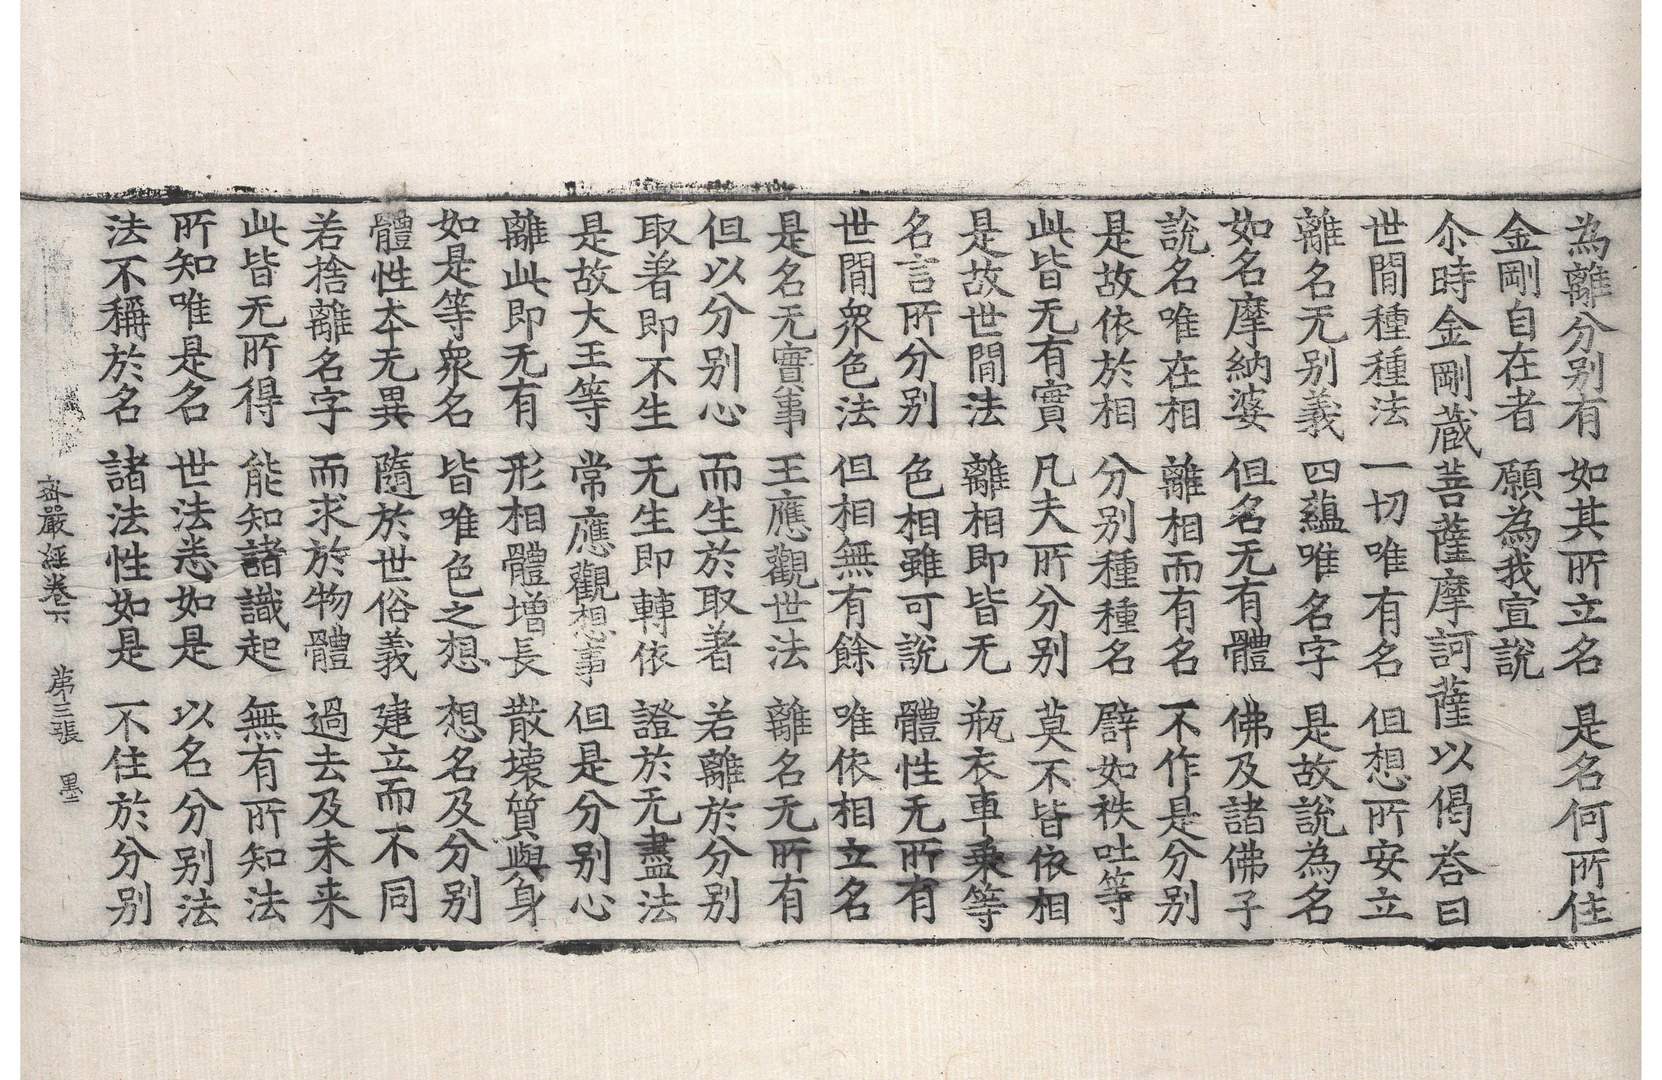 為離分別有　如其所立名　是名何所住
金剛自在者　願為我宣說
尒時金剛藏菩薩摩訶薩以偈荅曰
世間種種法　一切唯有名　但想所安立
離名无別義　四蘊唯名字　是故說為名
如名摩納婆　但名无有體　佛及諸佛子
說名唯在相　離相而有名　不作是分別
是故依於相　分別種種名　譬如袟吐等
此皆无有實　凡夫所分別　莫不皆依相
是故世間法　離相即皆无　瓶衣車乘等
名言所分別　色相雖可說　體性无所有
世間衆色法　但相無有餘　唯依相立名
是名无實事　王應觀世法　離名无所有
但以分別心　而生於取著　若離於分別
取著即不生　无生即轉依　證於无盡法
是故大王等　常應觀想事　但是分別心
離此即无有　形相體增長　散壞質與身
如是等衆名　皆唯色之想　想名及分別
體性夲无異　隨於世俗義　建立而不同
若捨離名字　而求於物體　過去及未来
此皆无所得　能知諸識起　無有所知法
所知唯是名　世法悉如是　以名分別法
法不稱於名　諸法性如是　不住於分別
密嚴經卷下　第三張　墨